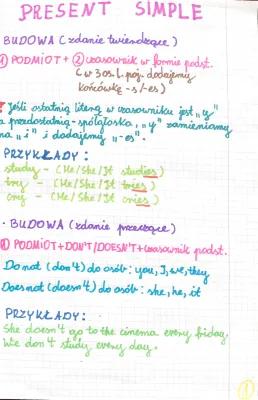 PRESENT SIMPLE
BUDOWA (zdanie twierdzące)
① PODMIOT + ② czasownik w formie podst.
(w 3 os. l. poj. dodajemy
końcówkę -s/-es)
! Jeśli ostatnią literą w czasowniku jest „y"
a przedostatnią - spółgłoska, „y" zamieniamy
na „i" i dodajemy „-es".
PRZYKŁADY:
study - (He/She/It studies)
try - (He/She/It tries)
cry - (He/She/It cries)
· BUDOWA (zdanie przeczące)
① PODMIOT + DON'T/DOESN'T + czasownik podst.
Do not (don't) do osób: you, I, we, they
Does not (doesn't) do osób: she, he, it
PRZYKŁADY:
She doesn't go to the cinema every friday.
We don't study every day.
①